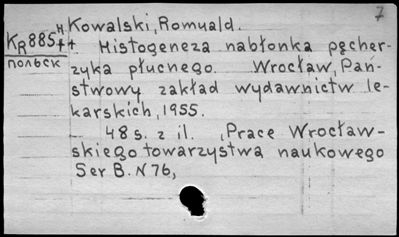 7
Kowalski, Romuald.
KR885 н
++ Histogeneza nabłonka pęcher-
польск
zyka płucnego. Wrocław, Pań-
stwowy zakład wydawnictw le-
karskich, 1955.
48 s. z il. (Prace Wrocław-
skiego towarzystwa naukowego
Ser B. N 76,